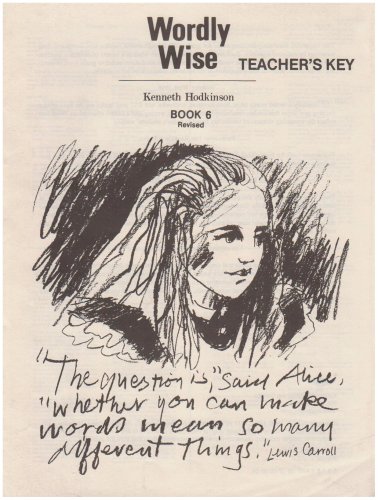 Wordly
Wise TEACHER'S KEY
Kenneth Hodkinson
BOOK 6
Revised
"The question is," said Alice,
"whether you can make
words mean so many
different things." Lewis Carroll